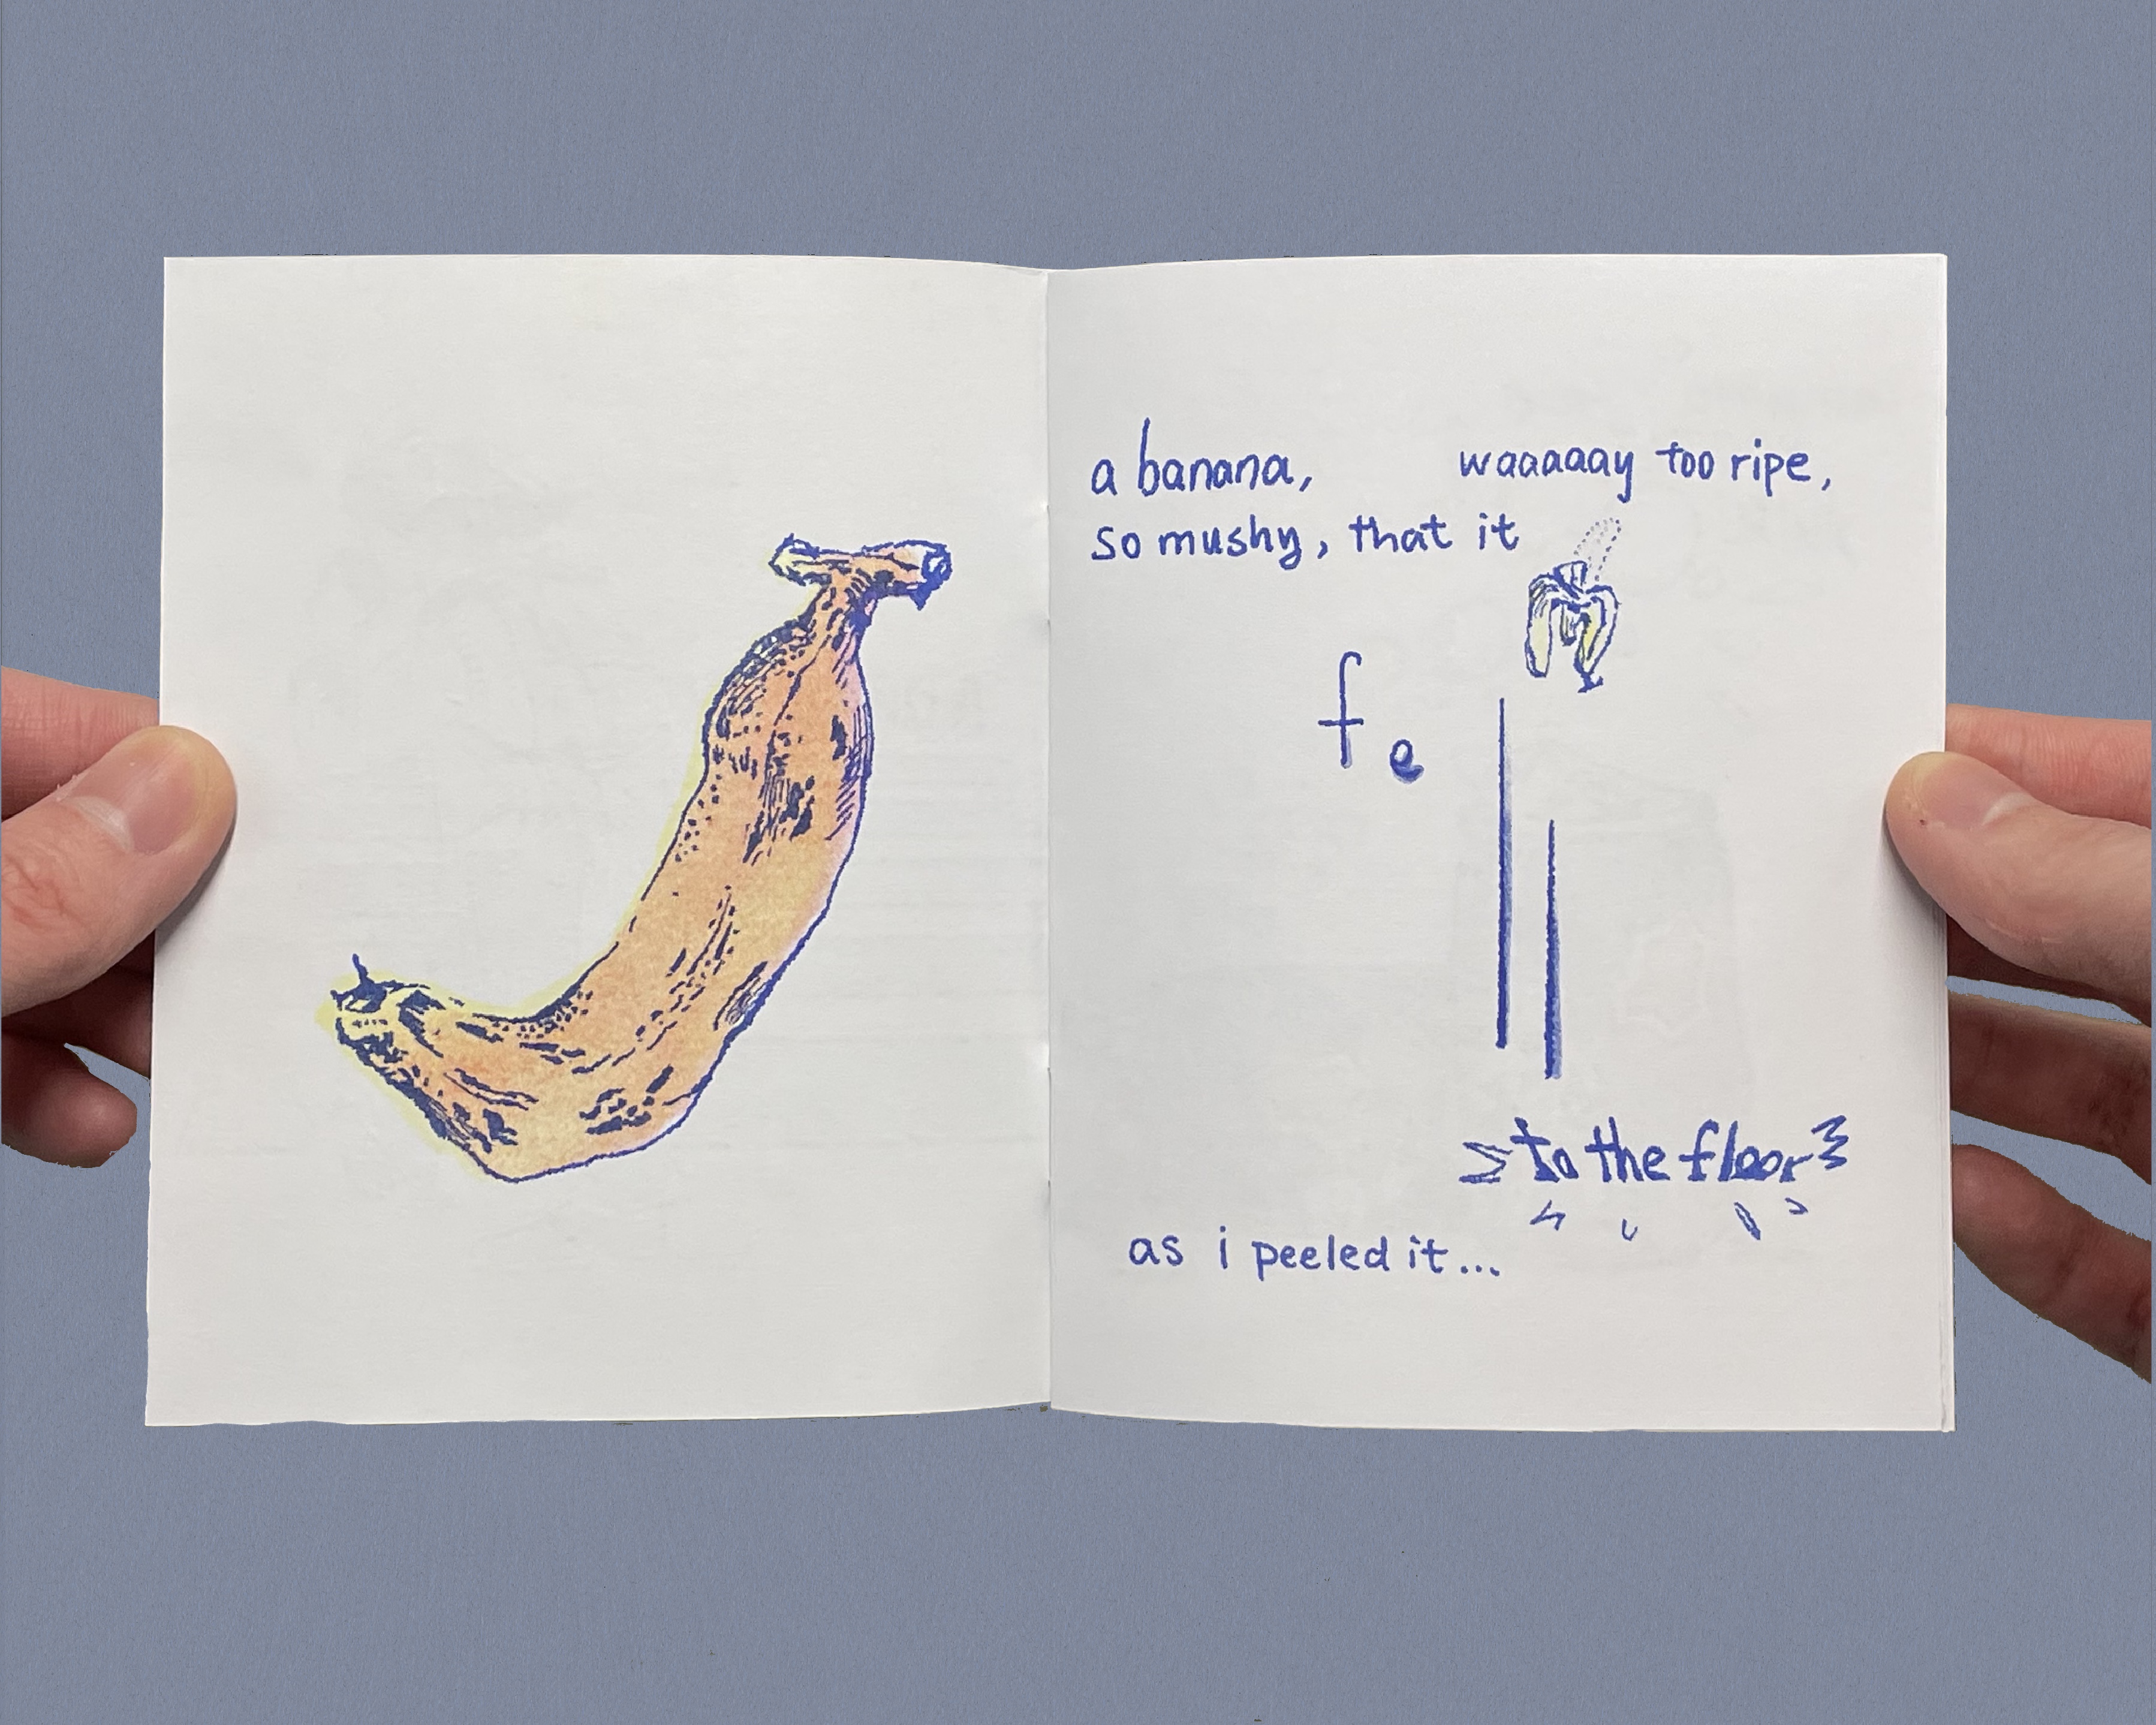 a banana, waaaaay too ripe,
so mushy, that it
fell
to the floor
as i peeled it...